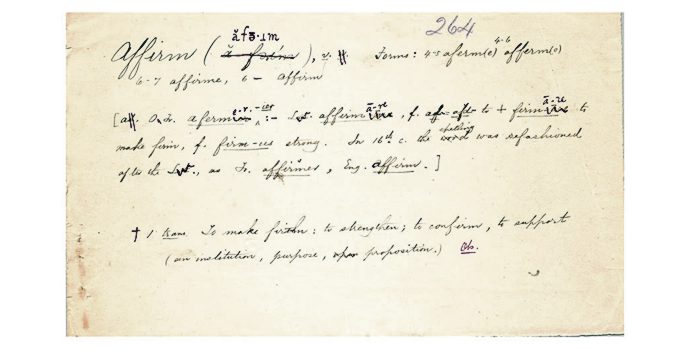 264
ăfə̄·ɹm
Affirm ( ), v. Forms: 4-5 aferm(e) 4-6 afferm(e)
6-7 affirme, 6- affirm
[a. O.Fr. aferm :- Lat. affirmā-re, f. af- to + firmā-re to
make firm, f. firm-us strong. In 16th c. the spelling was refashioned
after the Lat., as Fr. affirmer, Eng. affirm.]
† 1 trans. To make firm: to strengthen; to confirm, to support
(an institution, purpose, proposition.) Obs.